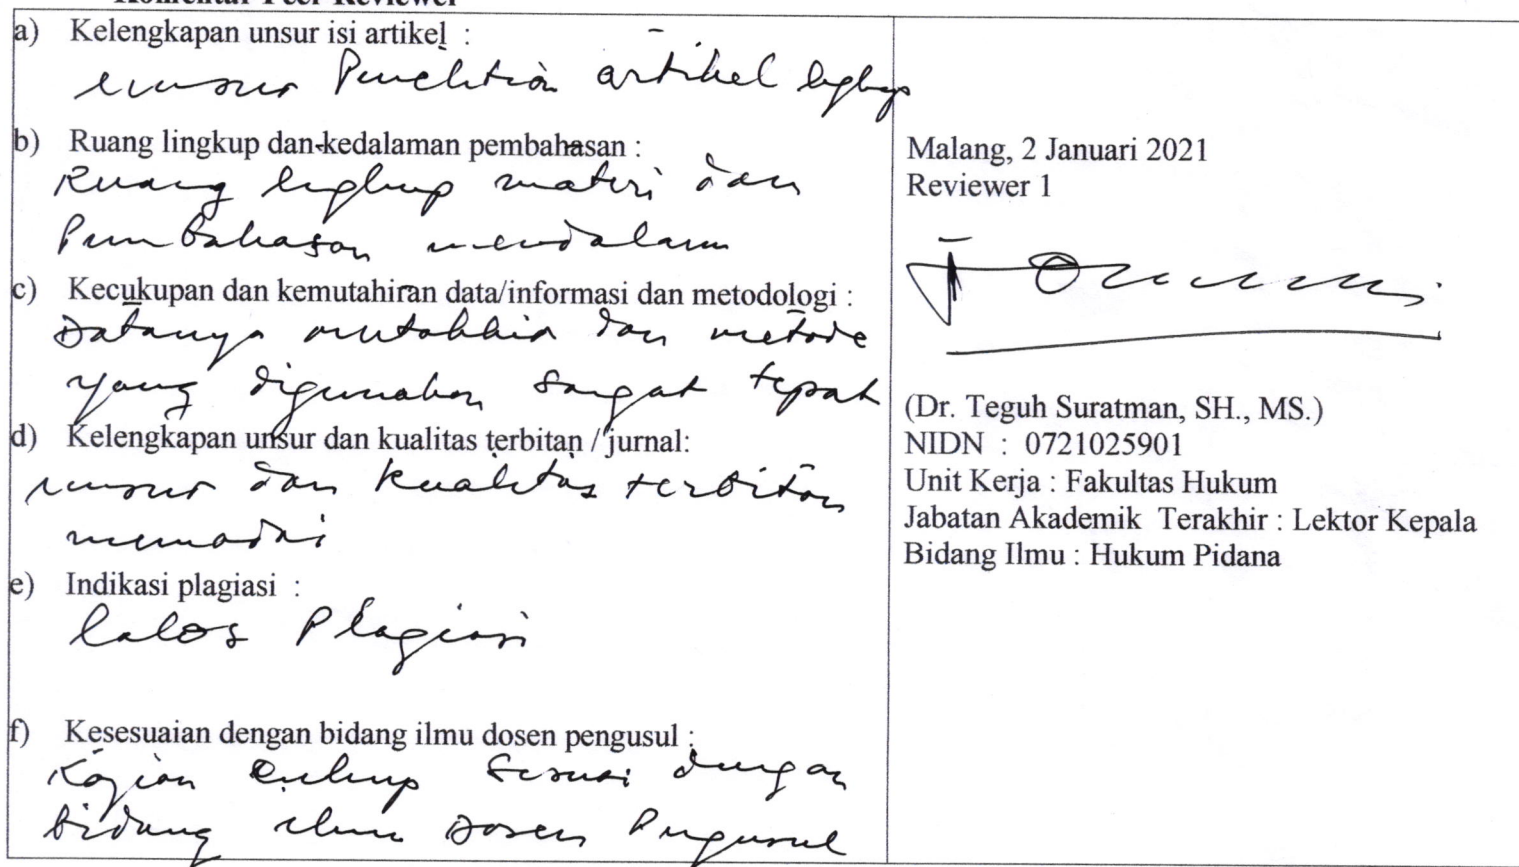 Komentar Peer Reviewer
a) Kelengkapan unsur isi artikel :
unsur Penelitian artikel lengkap
b) Ruang lingkup dan kedalaman pembahasan :
Ruang lingkup materi dan
Pembahasan mendalam
c) Kecukupan dan kemutahiran data/informasi dan metodologi :
Datanya mutakhir dan metode
yang digunakan sangat tepat
d) Kelengkapan unsur dan kualitas terbitan / jurnal:
unsur dan kualitas terbitan
memadai
e) Indikasi plagiasi :
lolos Plagiasi
f) Kesesuaian dengan bidang ilmu dosen pengusul :
Kajian cukup sesuai dengan
bidang ilmu Dosen Pengusul
Malang, 2 Januari 2021
Reviewer 1
(Dr. Teguh Suratman, SH., MS.)
NIDN : 0721025901
Unit Kerja : Fakultas Hukum
Jabatan Akademik Terakhir : Lektor Kepala
Bidang Ilmu : Hukum Pidana